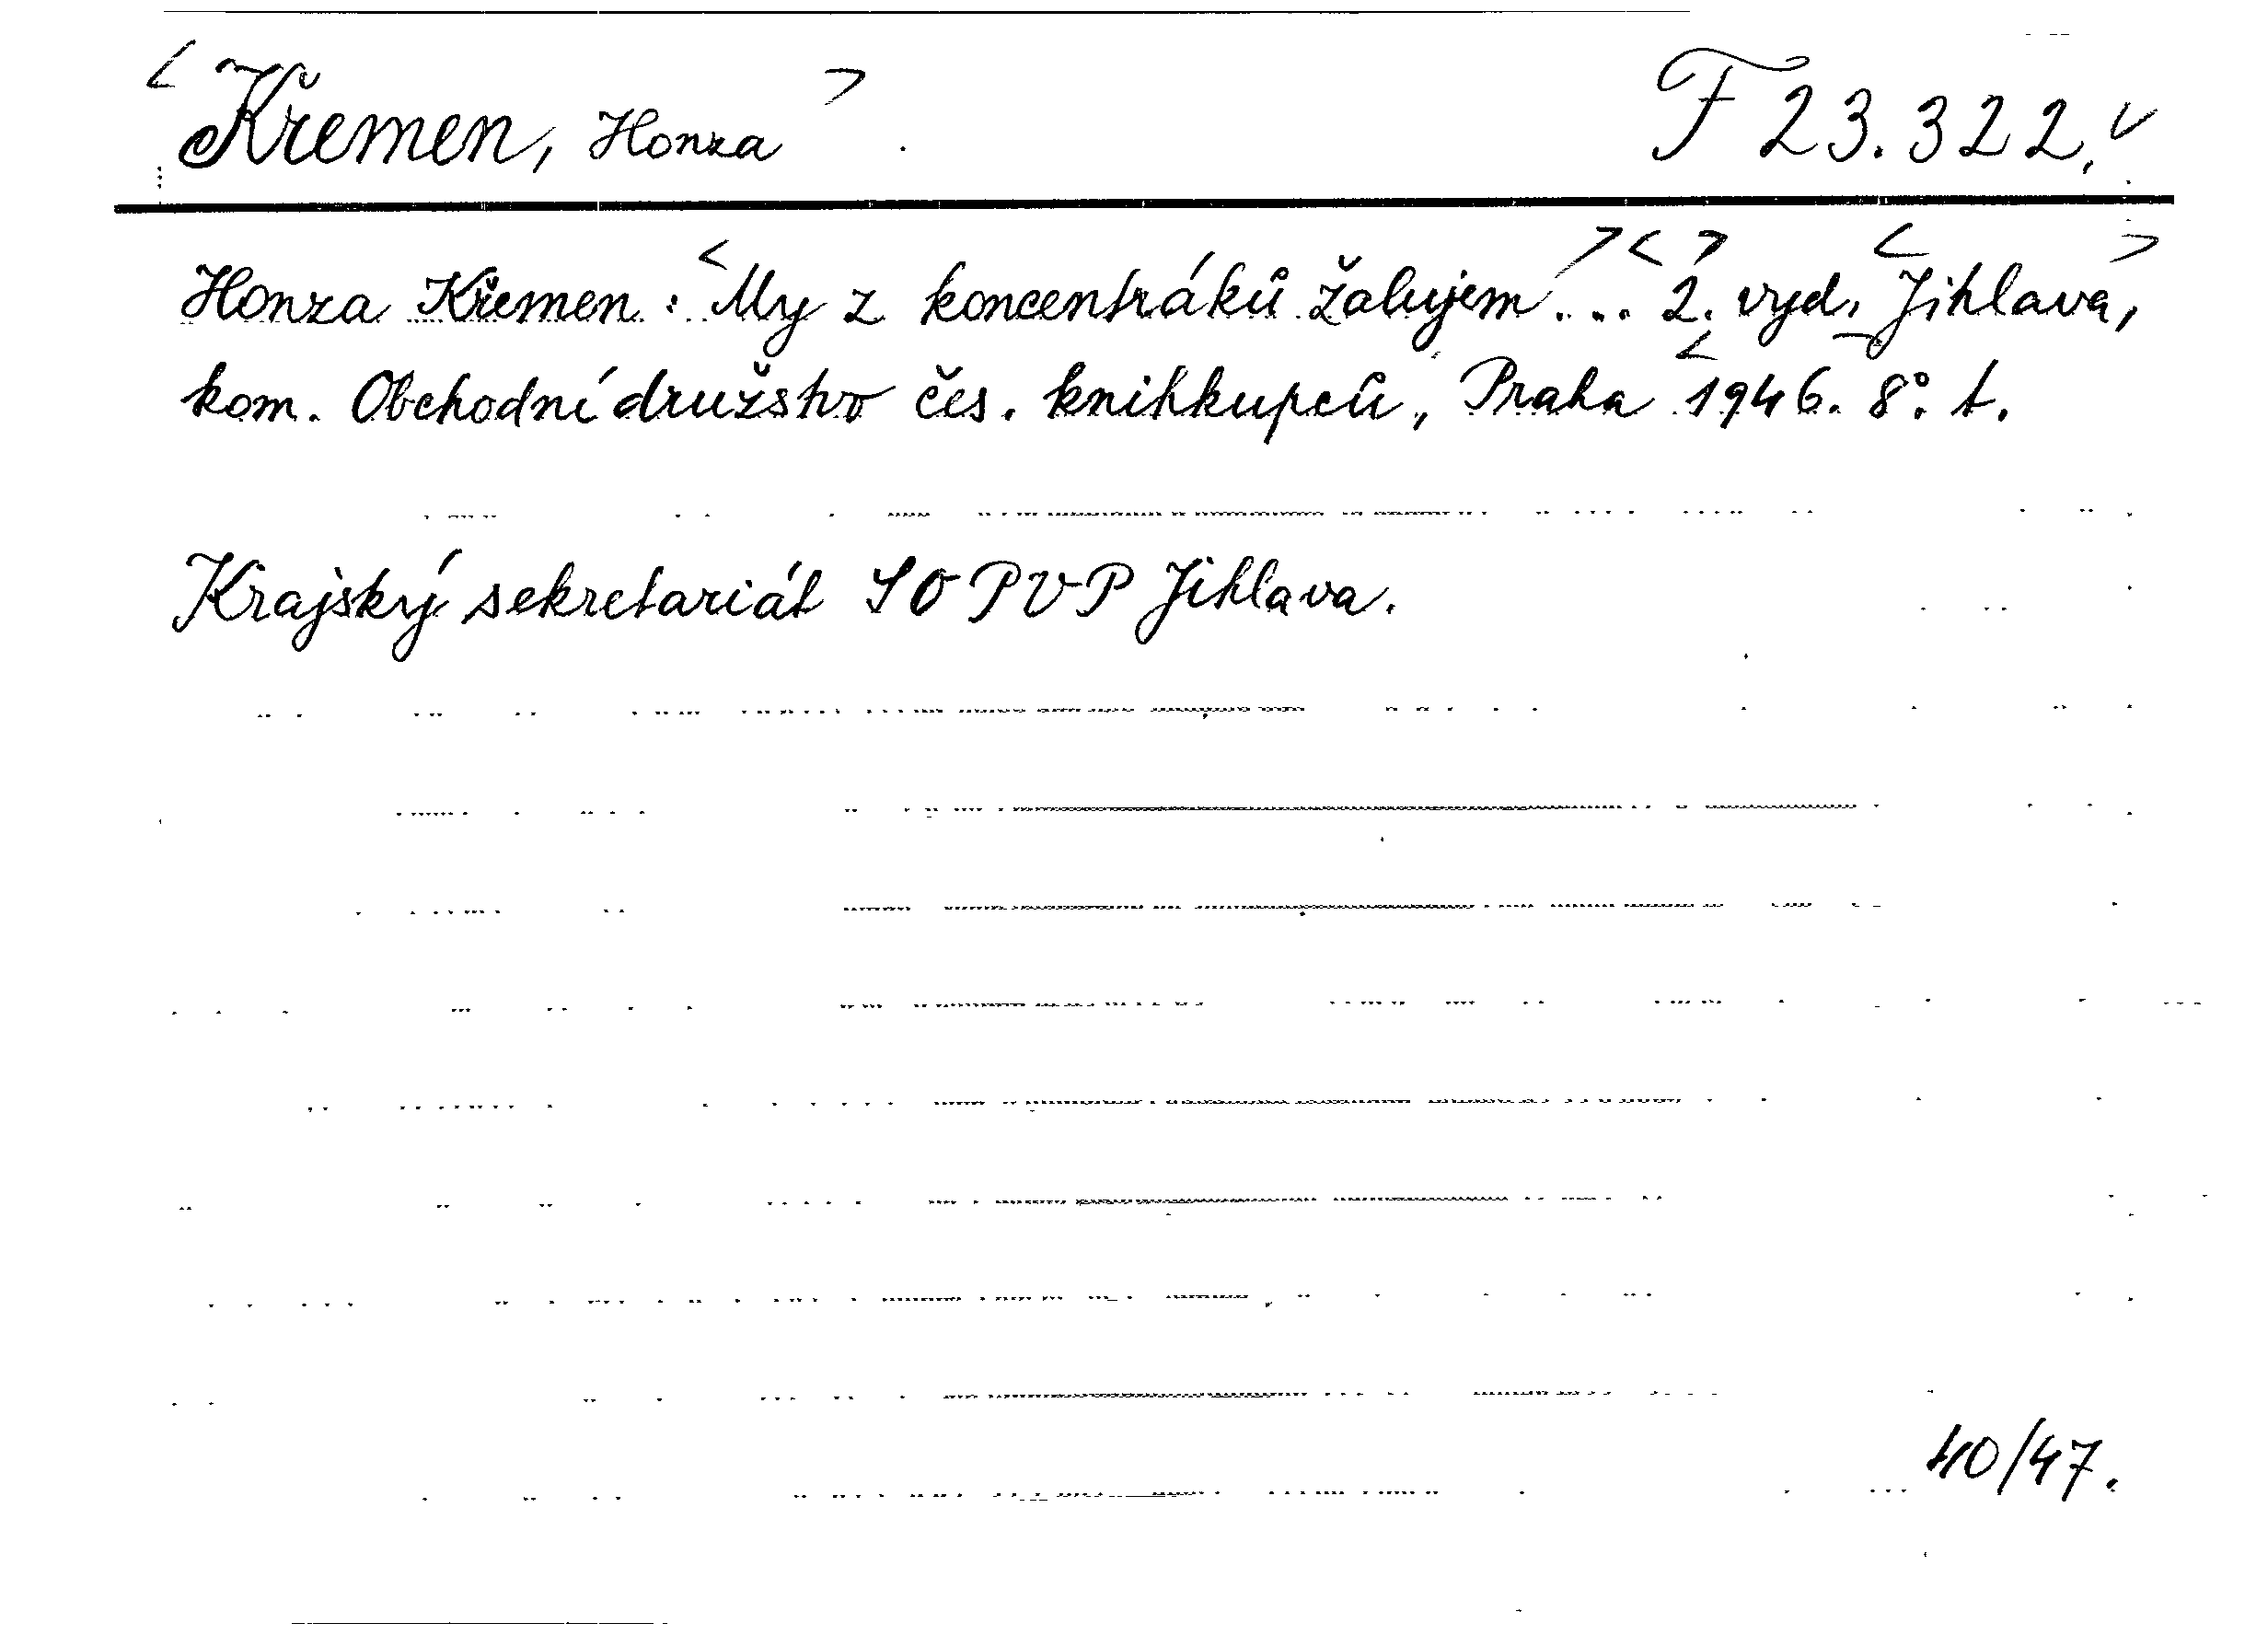 <Křemen, Honza>. F 23.322.
Honza Křemen: <My z koncentráků žalujem>... <2.> vyd. <Jihlava,>
kom. Obchodní družstvo čes. knihkupců, Praha <1946. 8°. t.
Krajský sekretariát SOPVP Jihlava.
40/47.